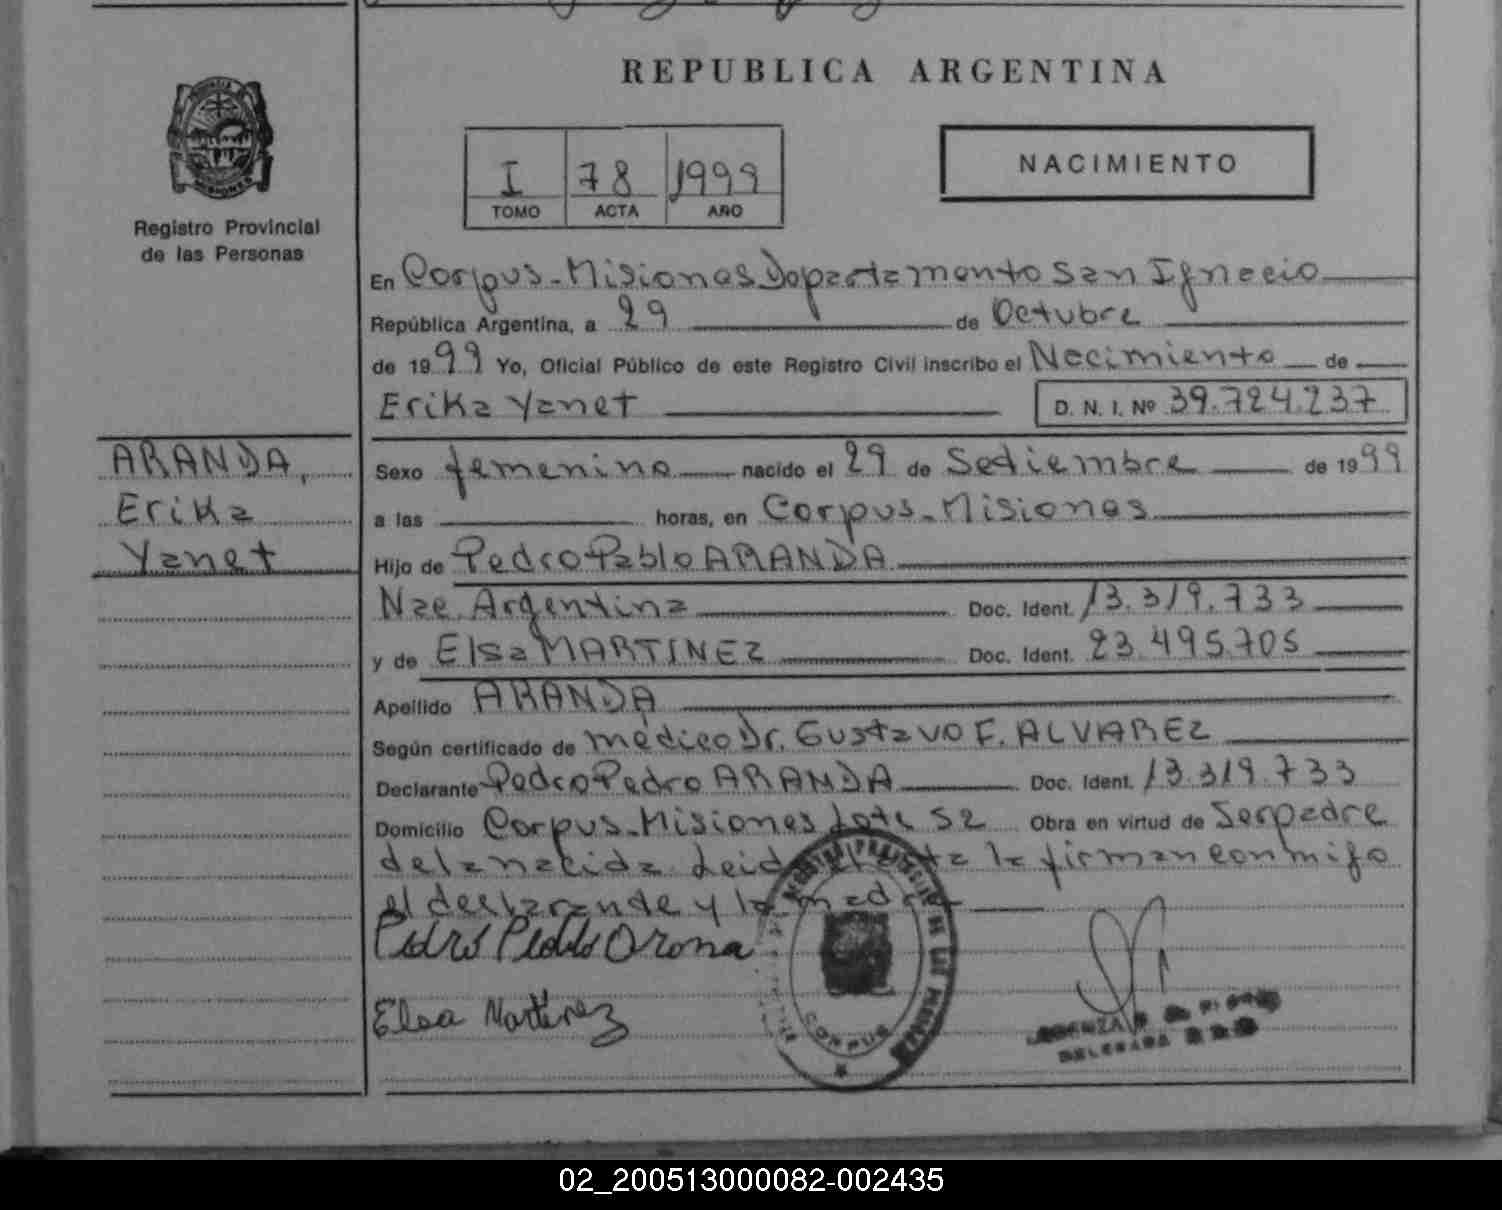 REPUBLICA ARGENTINA
Registro Provincial
de las Personas
I 78 1999
TOMO ACTA AÑO
NACIMIENTO
En Corpus-Misiones Departamento San Ignacio
República Argentina, a 29 de Octubre
de 1999 Yo, Oficial Público de este Registro Civil inscribo el Nacimiento de
Erika Yanet D. N. I. Nº 39.724.237
ARANDA,
Erika
Yanet
Sexo femenino nacido el 29 de Setiembre de 1999
a las horas, en Corpus-Misiones
Hijo de Pedro Pablo ARANDA
Nac. Argentina Doc. Ident. 13.319.733
y de Elsa MARTINEZ Doc. Ident. 23.495.705
Apellido ARANDA
Según certificado de médico Dr. Gustavo F. ALVAREZ
Declarante Pedro Pedro ARANDA Doc. Ident. 13.319.733
Domicilio Corpus-Misiones Lote 52 Obra en virtud de Ser padre
de la nacida. Leida el acta la firman conmigo
el declarande y la madre
Elsa Martinez
CORPUS
DELEGADA
02_200513000082-002435